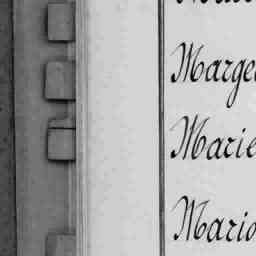 Marge
Marie
Mario